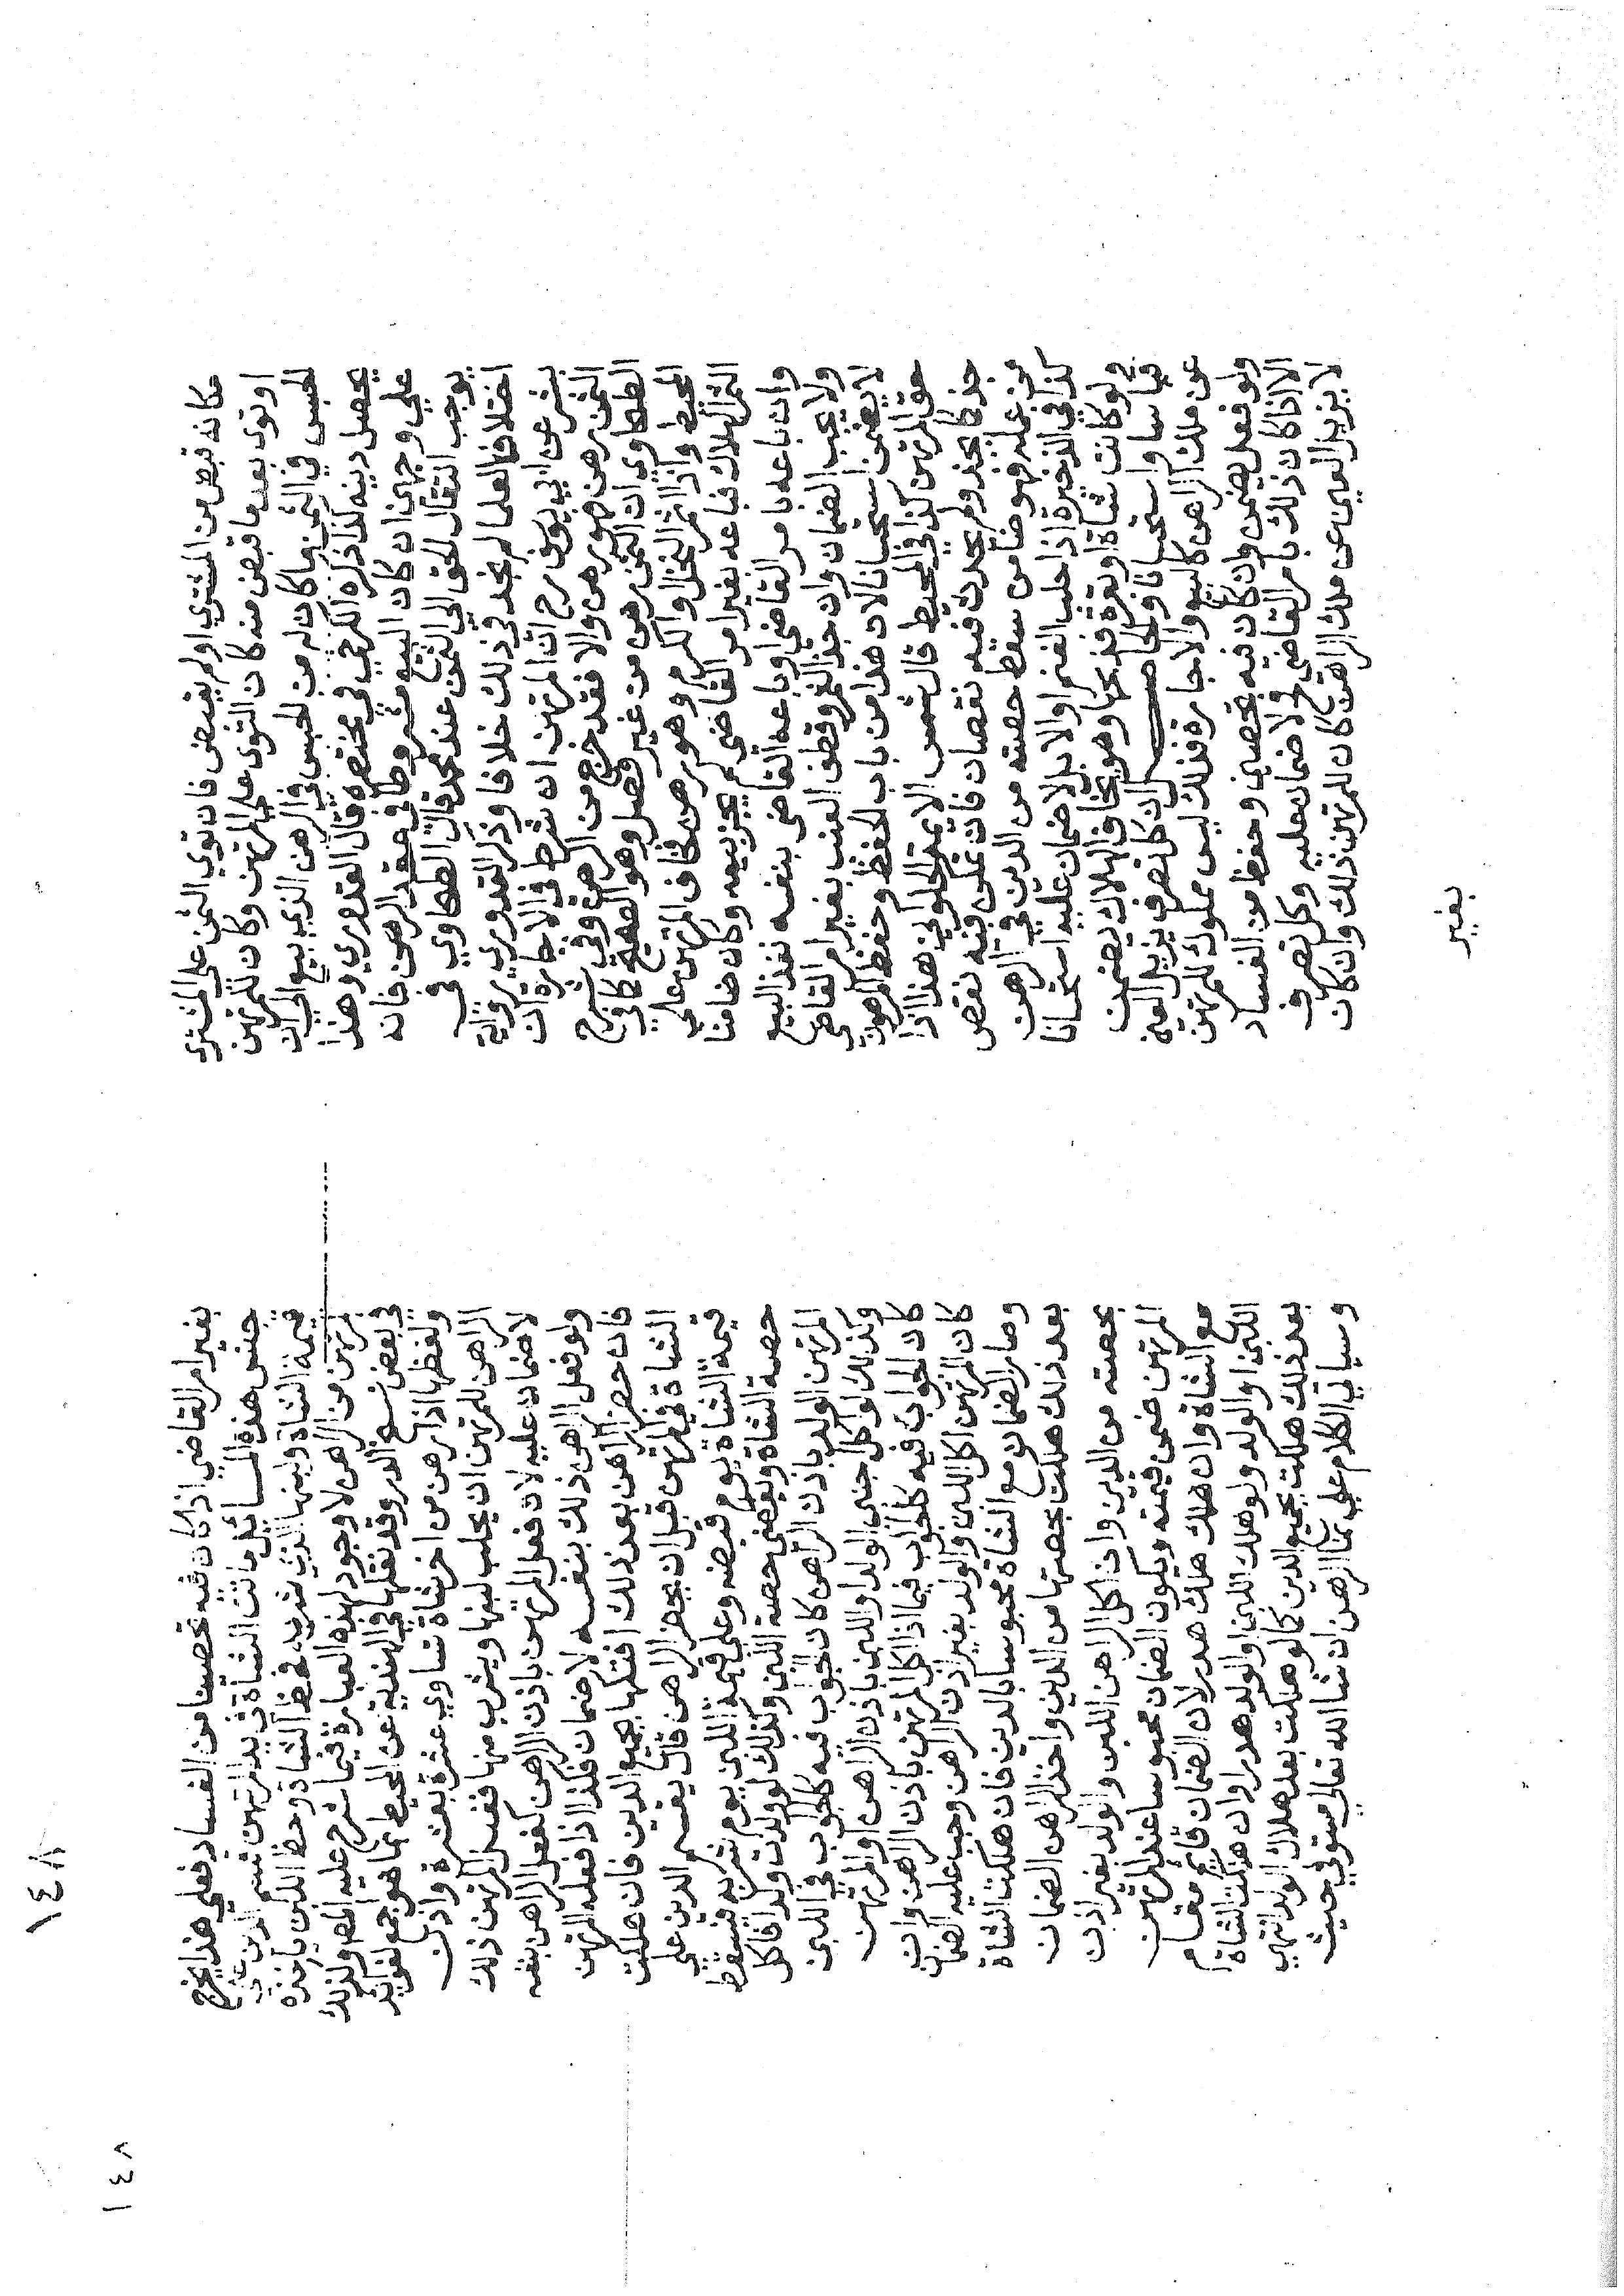 مكانه قبض من المشتري او لم يقبض فان توي الثمن علي المشتري
او توى بعد ما قبض منه كان التوى علي المرتهن وكان للمرتهن
الحبس في الثمن ما كان له من الحبس في الرهن الذي بيع الي ان
يحصل دينه كذا ذكره الكرخي في مختصره قال القدوري وهذا
علي وجهين ان كان البيع مشروطا في عقد الرهن فانه
يوجب انتقال الحق الي الثمن عند محمد قال الطحاوي في
اختلاف العلما لم نجد في ذلك خلافا وذكر القدوري رواية
بشر عن ابي يوسف رح ان المرتهن ان شرط في الاجازة ان
الثمن رهن فهو رهن والا فقد خرج من الرهن وفي شرح
الطحاوي ان الثمن رهن من غير فصل وهو الصحيح كذا في
المحيط واذا اثمر النخل والكرم وهو رهن فخاف المرتهن علي
الثمر الهلاك فباعه بغير امر القاضي لم يجز بيعه وكان ضامنا
وان باعه بامر القاضي او باعه القاضي بنفسه نفذ البيع
ولا يجب الضمان وان جذ الثمر وقطف العنب بغير امر القاضي
لا يضمن استحسانا لان هذا من باب الحفظ وحفظ المرهون
حق المرتهن كذا في المحيط قال شمس الايمة الحلواني هذا اذا
جذ كما يجذ ولم يحدث فيه نقصان فان تمكن فيه نقص
من عمله فهو ضامن سقط حصته من الدين في الرهن
كذا في الذخيرة اذا حلب الغنم او الابل لا ضمان عليه استحسانا
ولو كانت شاة او بقرة فذبحها وهو يخاف الهلاك يضمن
قياسا واستحسانا والحاصل ان كل تصرف يزيل العين
عن ملك الراهن كالبيع والاجارة فذلك ليس بمملوك للمرتهن
ولو فعل يضمن وان كان فيه تحصين وحفظ من الفساد
الا اذا كان ذلك بامر القاضي فح لا ضمان عليه وكل تصرف
لا يزيل العين عن ملك الراهن كان للمرتهن ذلك وان كان
بغير
بغير امر القاضي اذا كان فيه تحصينا من الفساد فعلي هذا يخرج
جنس هذه المسائل ماتت الشاة في يد المرتهن قسم الدين علي
قيمة الشاة ولبنها الذي شربه فحظ الشاة وحظ اللبن ياخذه
المرتهن من الراهن لا وجود لهذه العبارة فيما شرح عليه المص ولذلك
في بعض نسخ الدر وقد نقلها في الهندية عن المحيط بما هو اجمع لفوايد
ولفظها اذا رهن من اخر شاة تساوي عشرة بعشرة واذن
الراهن للمرتهن ان يحلب لبنها ويشرب منها ففعل المرتهن ذلك
لا ضمان عليه لان فعل المرتهن باذن الراهن كفعل الراهن بنفسه
ولو فعل الراهن ذلك بنفسه لا ضمان فكذا اذا فعله المرتهن
فان حضر الراهن بعد ذلك افتكها بجميع الدين فان هلكت
الشاة في المرتهن قبل ان يحضر الراهن قال يقسم الدين علي
قيمة الشاة يوم قبضه وعلي قيمة اللبن يوم شربه فيسقط
حصة الشاة ويقضي حصة اللبن وكذلك لو ولدت ولدا فاكل
المرتهن الولد باذن الراهن كان الجواب فيه كالجواب في اللبن
وكذلك لو اكل اجنبي الولد او اللبن باذن الراهن او المرتهن
كان الجواب فيه كالجواب فيما اذا اكل المرتهن باذن الراهن وان
كان المرتهن اكل اللبن والولد بغير اذن الراهن وجب عليه الضمان
وصار الضمان مع الشاة محبوسا بالدين فان هلكت الشاة
بعد ذلك هلكت بحصتها من الدين واخذ الراهن الضمان
بحصته من الدين وان اكل الراهن اللبن والولد بغير اذن
المرتهن ضمن قيمته ويكون الضمان محبوسا عند المرتهن
مع الشاة وان هلك هلك هدرا لان الضمان قائم مقام
اللبن او الولد ولو هلك اللبن او الولد هدر وان هلكت الشاة
بعد ذلك هلكت بجميع الدين كما لو هلكت بعد هلاك الولد انتهي
وسياتي الكلام علي نما الرهن ان شا الله تعالي مستوفي حيث
١٤٨
١٤٨